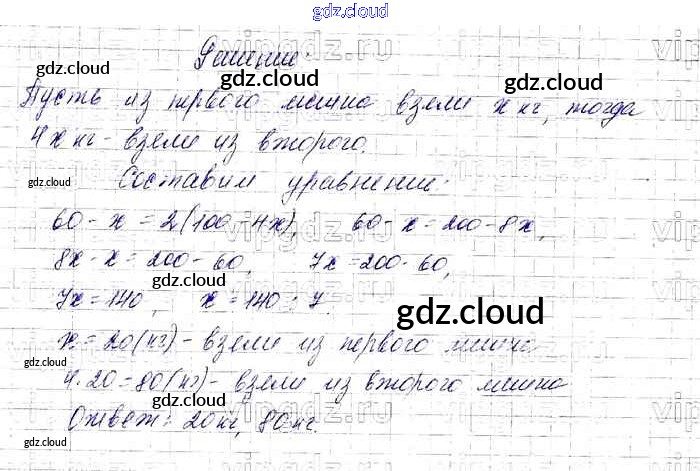 gdz.cloud
Решение:
gdz.cloud gdz.cloud gdz.cloud
Пусть из первого мешка взяли x кг, тогда
4x кг - взяли из второго.
gdz.cloud Составим уравнение: gdz.cloud
60 - x = 2(100 - 4x), 60 - x = 200 - 8x,
8x - x = 200 - 60, 7x = 200 - 60,
gdz.cloud gdz.cloud
7x = 140, x = 140 : 7.
gdz.cloud
x = 20 (кг) - взяли из первого мешка
gdz.cloud gdz.cloud
4·20 = 80 (кг) - взяли из второго мешка
Ответ: 20 кг, 80 кг.
gdz.cloud gdz.cloud